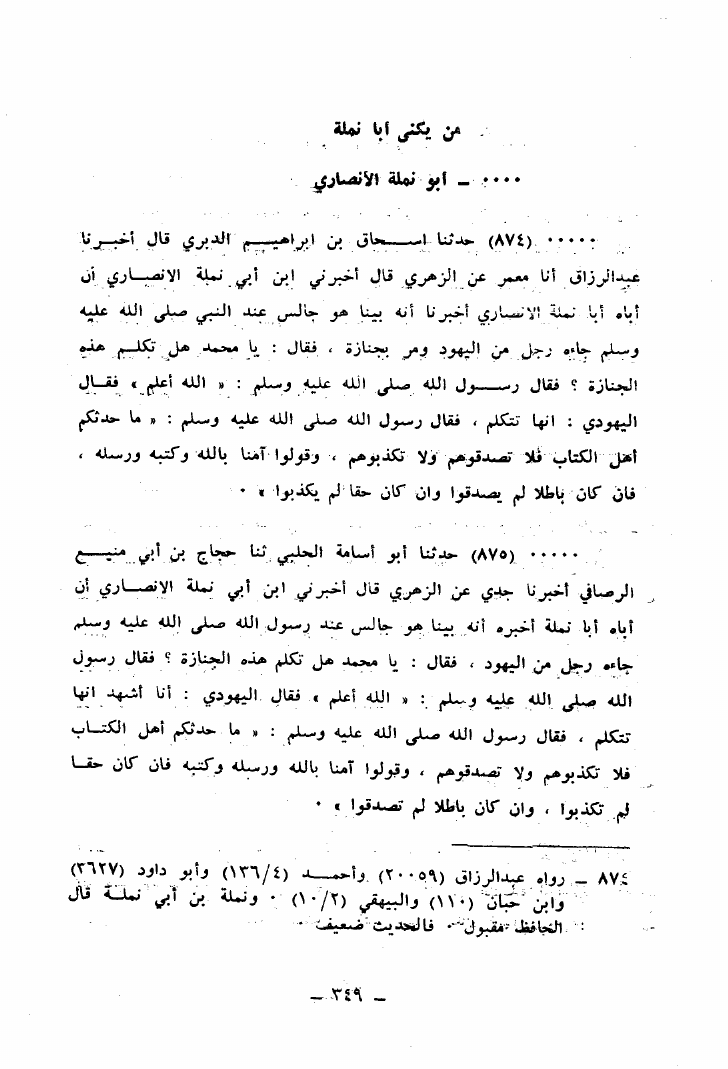 من يكنى أبا نملة
٠٠٠٠ ــ أبو نملة الأنصاري
٠٠٠٠٠ (٨٧٤) حدثنا اســحاق بن ابراهيــم الدبري قال أخبــرنا
عبدالرزاق أنا معمر عن الزهري قال أخبرني ابن أبي نملة الانصــاري أن
أباه أبا نملة الانصاري أخبرنا أنه بينا هو جالس عند النبي صلى الله عليه
وسلم جاءه رجل من اليهود ومر بجنازة ، فقال : يا محمد هل تكلــم هذه
الجنازة ؟ فقال رســول الله صلى الله عليه وسلم : « الله أعلم » فقــال
اليهودي : انها تتكلم ، فقال رسول الله صلى الله عليه وسلم : « ما حدثكم
أهل الكتاب فلا تصدقوهم ولا تكذبوهم ، وقولوا آمنا بالله وكتبه ورسله ،
فان كان باطلا لم يصدقوا وان كان حقا لم يكذبوا » ٠
٠٠٠٠٠ (٨٧٥) حدثنا أبو أسامة الحلبي ثنا حجاج بن أبي منيــع
الرصافي أخبرنا جدي عن الزهري قال أخبرني ابن أبي نملة الانصــاري أن
أباه أبا نملة أخبره أنه بينا هو جالس عند رسول الله صلى الله عليه وسلم
جاءه رجل من اليهود ، فقال : يا محمد هل تكلم هذه الجنازة ؟ فقال رسول
الله صلى الله عليه وسلم : « الله أعلم » فقال اليهودي : أنا أشهد انها
تتكلم ، فقال رسول الله صلى الله عليه وسلم : « ما حدثكم أهل الكتــاب
فلا تكذبوهم ولا تصدقوهم ، وقولوا آمنا بالله ورسله وكتبه فان كان حقــا
لم تكذبوا ، وان كان باطلا لم تصدقوا » ٠
٨٧٤ ــ رواه عبدالرزاق (٢٠٠٥٩) وأحمــد (١٣٦/٤) وأبو داود (٣٦٢٧)
وابن حبان (١١٠) والبيهقي (١٠/٢) ٠ ونملة بن أبي نملــة قال
الحافظ مقبول ٠ فالحديث ضعيف ٠
ــ ٣٤٩ ــ